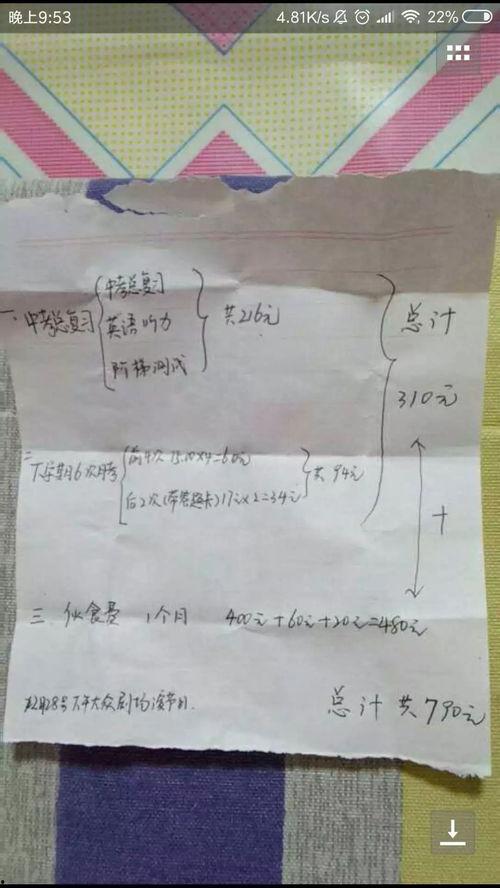 晚上9:53
4.81K/s
22%
一、中考总复习
中考总复习
英语听力
阶梯测试
共216元
总计
310元
二
下学期6次月考
前4次 15.00×4=60元
后2次(带答题卡)17元×2=34元
共94元
+
三 伙食费 1个月 400元+60元+20元=480元
下午大众剧场演节目.
总计 共790元